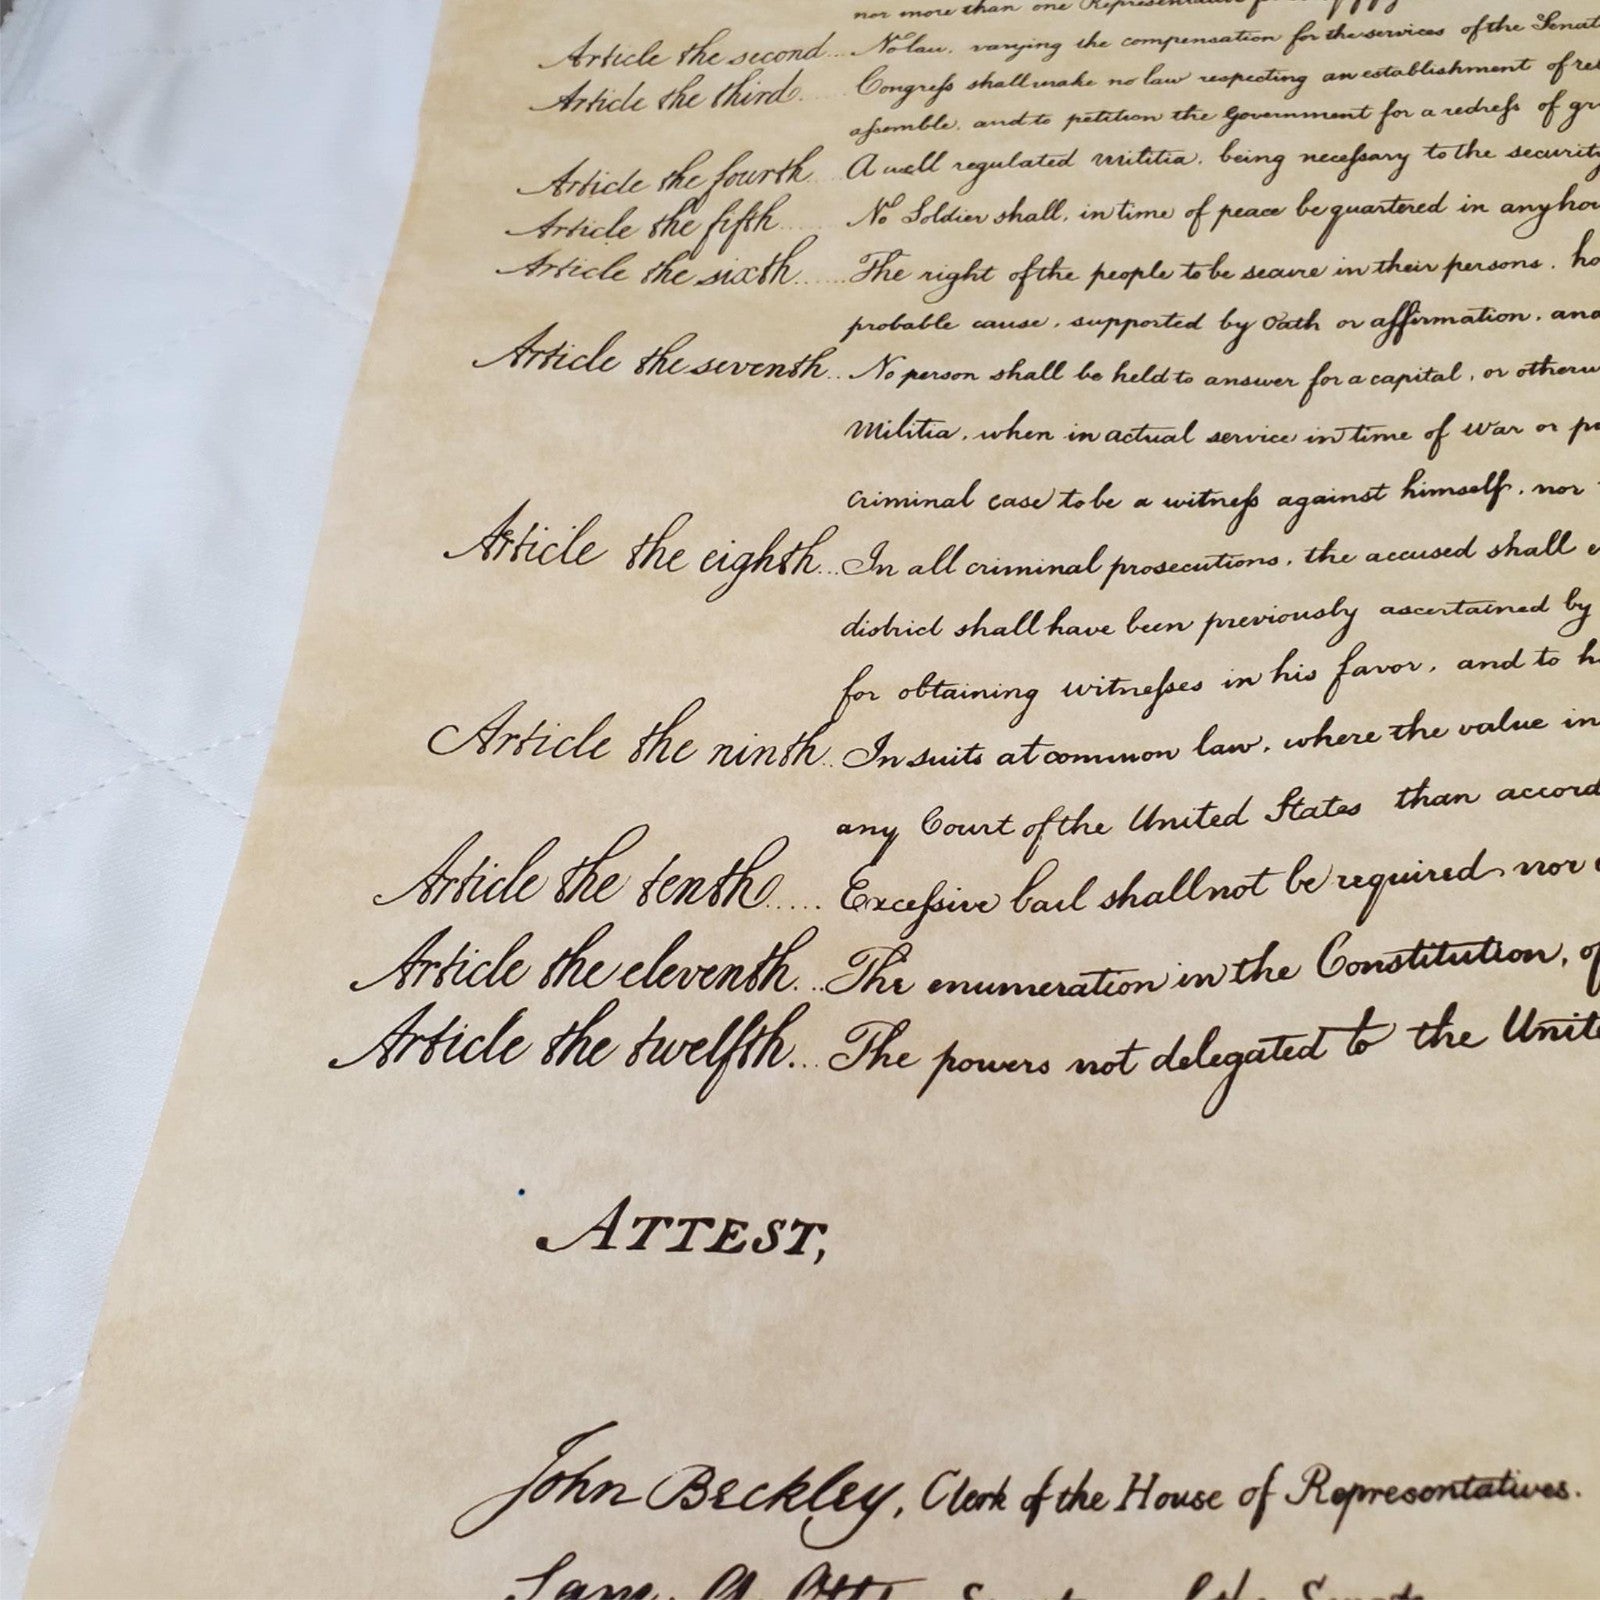 nor more than one Representative for
Article the second... No law, varying the compensation for the services of the Senat
Article the third..... Congreſs shall make no law respecting an establishment of re
aſsemble, and to petition the Government for a redreſs of gr
Article the fourth.... A well regulated militia, being neceſsary to the security
Article the fifth..... No Soldier shall, in time of peace be quartered in any hou
Article the sixth...... The right of the people to be secure in their persons, ho
probable cause, supported by Oath or affirmation, and
Article the seventh.. No person shall be held to answer for a capital, or otherw
Militia, when in actual service in time of War or pu
criminal case to be a witneſs against himself, nor
Article the eighth... In all criminal prosecutions, the accused shall e
district shall have been previously ascertained by
for obtaining witneſses in his favor, and to h
Article the ninth.. In suits at common law, where the value in
any Court of the United States than accord
Article the tenth..... Exceſsive bail shall not be required nor
Article the eleventh... The enumeration in the Constitution, of
Article the twelfth... The powers not delegated to the Unite
ATTEST,
John Beckley, Clerk of the House of Representatives.
Sam. A. Otis Secretary of the Senate